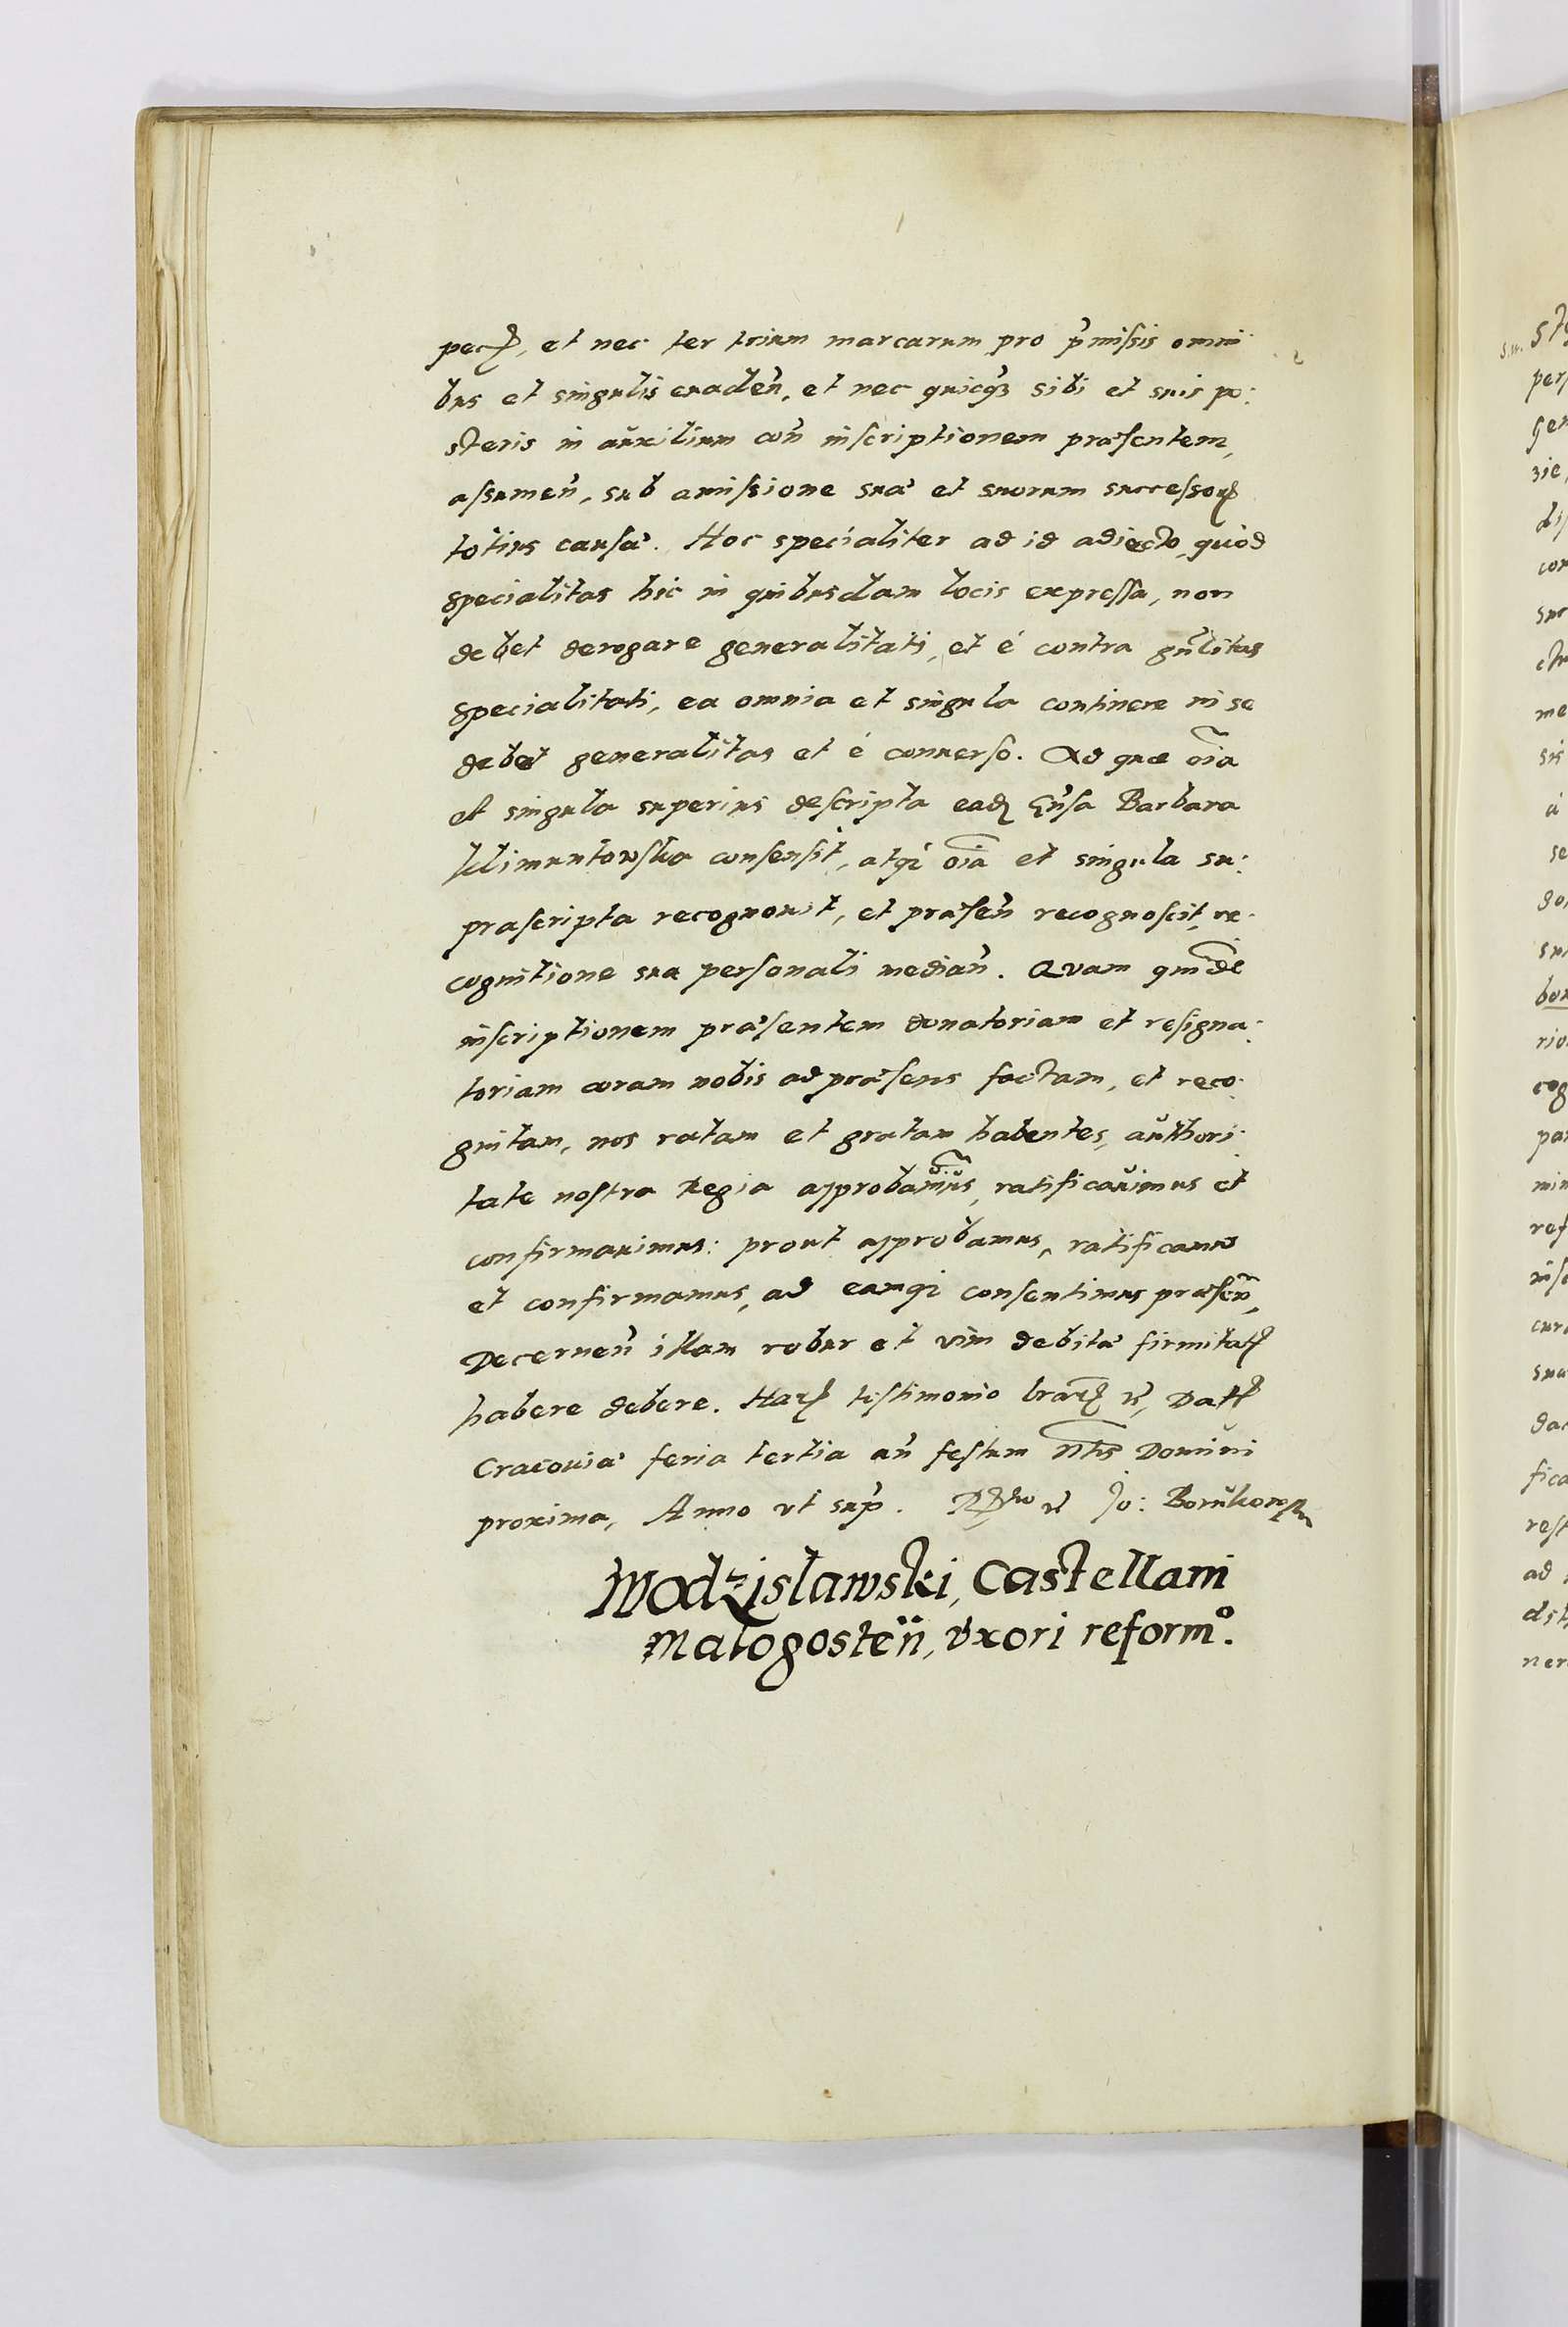 et nec ter trium marcarum pro p̃missis omni
bus et singulis euaden̄, et nec quicq̃ sibi et suis po:
steris in auxilium con̄ inscriptionem præsentem,
assumen̄, sub amissione sua et suorum successoꝝ
totius causæ. Hoc specialiter ad id adiecto, quòd
specialitas hic in quibusdam locis expressa, non
debet derogare generalitati, et è contra gñlitas
specialitati, ea omnia et singula continere in se
debet generalitas et è conuerso. Ad quæ oĩa
et singula superius descripta eadꝫ Barbara
Klimuntowska consensit, atq̃ oĩa et singula su:
prascripta recognouit, et præsen̄ recognoscit, re:
cognitione sua personali median̄. Quam quidẽ
inscriptionem præsentem donatoriam et resigna:
toriam coram nobis ad præsens factam, et reco:
gnitam, nos ratam et gratam habentes, authori:
tate nostra Regia approbauimus, ratificauimus et
confirmauimus: prout approbamus, ratificamus
et confirmamus, ad eamq̃ consentimus præsen̄,
Decernen̄ illam robur et vim debitæ firmitat̃
habere debere. Har̃ testimonio lrar̃ &, Datt̃
Cracouiæ feria tertia an̄ festum Ntis Domini
proxima, Anno vt sup̃. & Jo:
Wodzislawski, Castellani
Malogosten̄, vxori reformo.
sty
per
gen
zie,
dis
con
suc
me
sis
se
su
rio
cog
par
min
ref
ins
cura
sua
dar
fica
rest
ad
ner